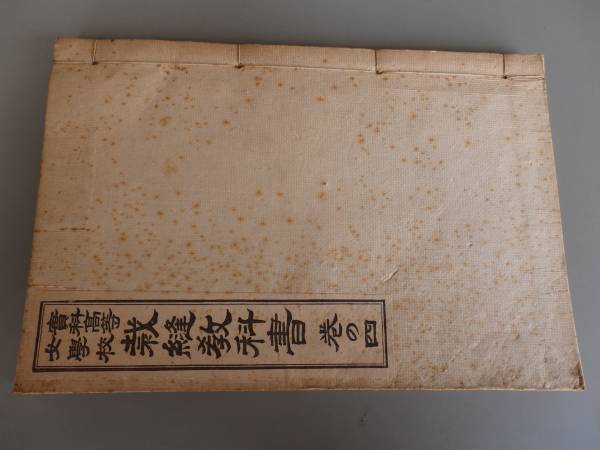 實科高等
女學校
裁縫教科書
卷の四